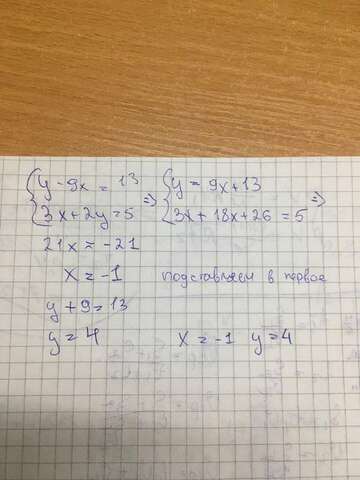 {y - 9x = 13 => {y = 9x + 13 =>
{3x + 2y = 5 {3x + 18x + 26 = 5
21x = -21
x = -1 подставляем в первое
y + 9 = 13
y = 4 x = -1 y = 4